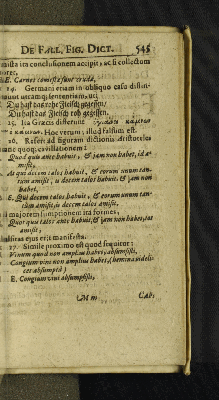 DE FALL. FIG. DICT. 545
mista ita conclusionem accipit, ac si collectum
E. Carnes comestæ sunt crudæ,
14. Germani etiam in obliquo casu distin-
sententiam, ut:
Du hast das rohe Fleisch gegessen/
Du hast das Fleisch roh gegessen.
15. Ita Græcis differunt
Hoc verum; illud falsum est.
16. Refert ad figuram dictionis Aristoteles
hanc quoq; cavillationem:
Quod quis ante habuit, & jam non habet, id a-
misit,
At qui decem talos habuit, & eorum unum tan-
tum amisit, is decem talos habuit, & jam non
habet,
E. Qui decem talos habuit, & eorum unum tan-
tum amisit, is decem talos amisit,
majorem sumptionem ita formes,
Quot quis talos ante habuit, & jam non habet, tot
amisit,
ejus erit manifesta.
17. Simile proximo est quod sequitur:
Vinum quod non amplius habes, absumpsisti,
Congium vini non amplius habes, (hemina videli-
cet absumpta)
E. Congium vini absumpsisti,
M m